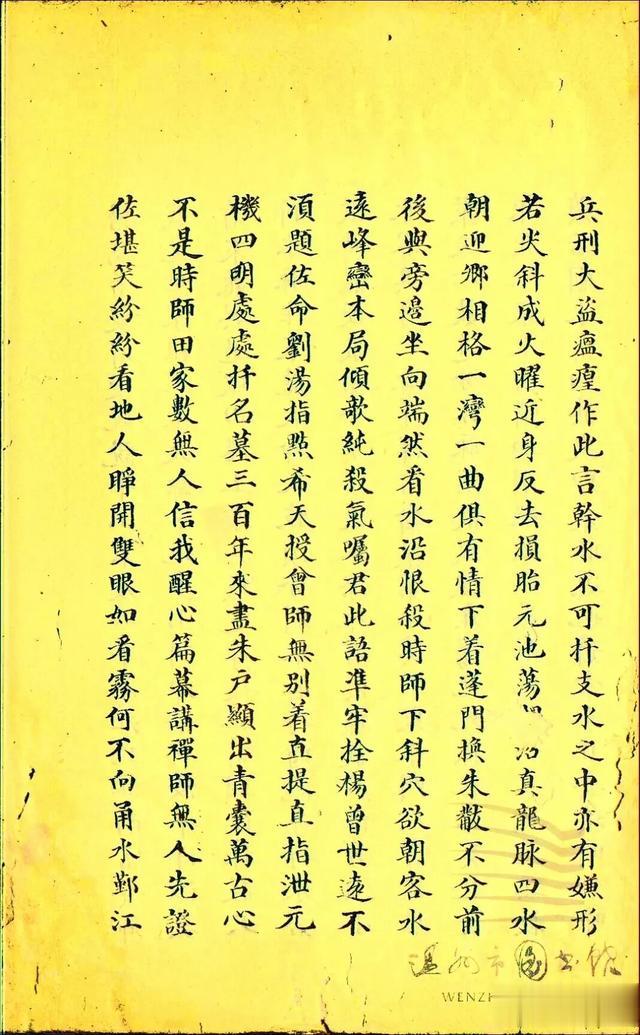 兵刑大盜瘟㾮作此言幹水不可扦支水之中亦有嫌形
若尖斜成火曜近身反去損胎元池蕩真龍脉四水
朝迎鄉相格一灣一曲俱有情下着蓬門換朱黻不分前
後與旁邉坐向端然看水沿恨殺時師下斜穴欲朝客水
遠峰巒本局傾欹純殺氣囑君此語凖牢拴楊曾世遠不
須題佐命劉湯指點希天授曾師無別着直提直指泄元
機四明處處扦名墓三百年來盡朱戶顯出青囊萬古心
不是時師田家數無人信我醒心篇幕講禪師無人先證
佐堪笑紛紛看地人睜開雙眼如看霧何不向甬水鄞江
温州市圖書館
WENZ